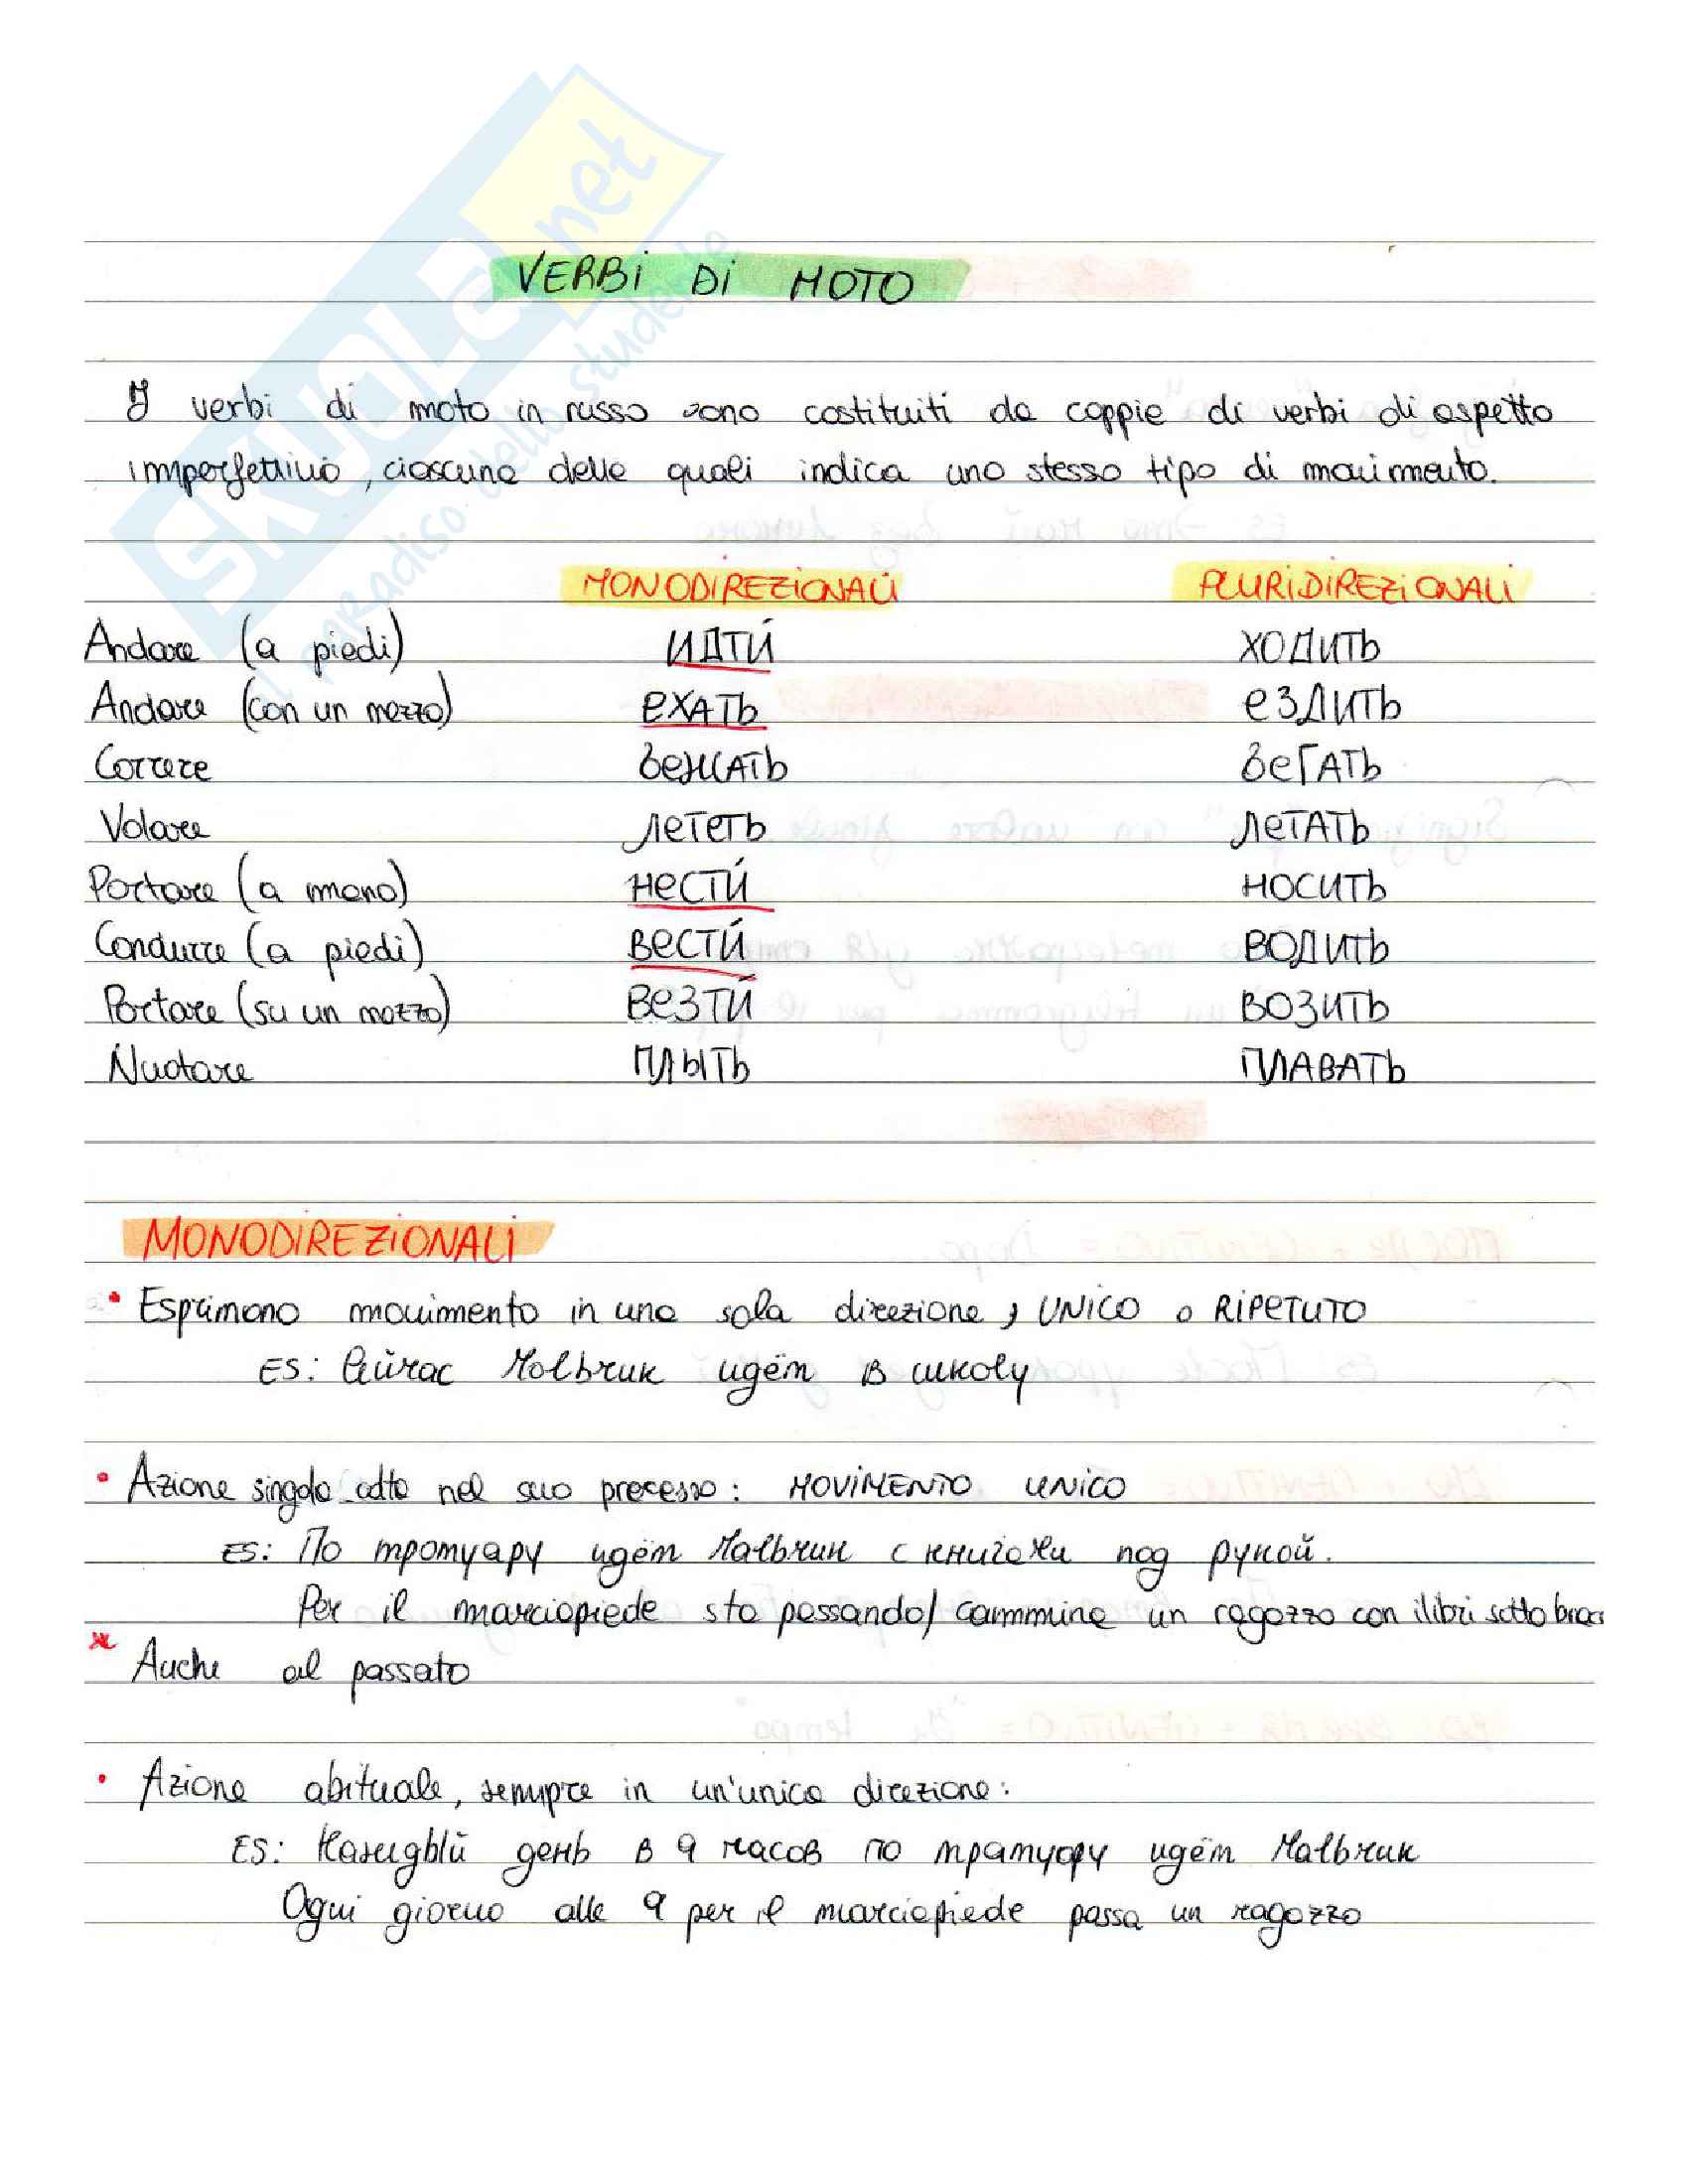 SKUOLA.net
il paradiso dello studente
VERBI DI MOTO
I verbi di moto in russo sono costituiti da coppie di verbi di aspetto
imperfettivo, ciascuna delle quali indica uno stesso tipo di movimento.
MONODIREZIONALI PLURIDIREZIONALI
Andare (a piedi) ИДТИ́ ХОДИТЬ
Andare (con un mezzo) ЕХАТЬ ЕЗДИТЬ
Correre БЕЖАТЬ БЕГАТЬ
Volare ЛЕТЕТЬ ЛЕТАТЬ
Portare (a mano) НЕСТИ́ НОСИТЬ
Condurre (a piedi) ВЕСТИ́ ВОДИТЬ
Portare (su un mezzo) ВЕЗТИ́ ВОЗИТЬ
Nuotare ПЛЫТЬ ПЛАВАТЬ
MONODIREZIONALI
• Esprimono movimento in una sola direzione, UNICO o RIPETUTO
ES: Сейчас мальчик идёт в школу
• Azione singola nel suo processo: MOVIMENTO UNICO
ES: По тротуару идёт мальчик с книгами под рукой.
Per il marciapiede sta passando/cammina un ragazzo con i libri sotto
* Anche al passato
• Azione abituale, sempre in un'unica direzione:
ES: Каждый день в 9 часов по тратуару идёт мальчик
Ogni giorno alle 9 per il marciapiede passa un ragazzo